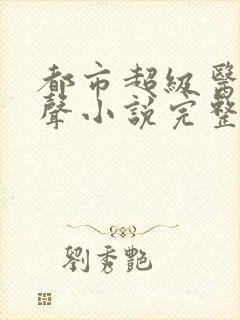 都市超級醫
聲小說完整
劉秀艷